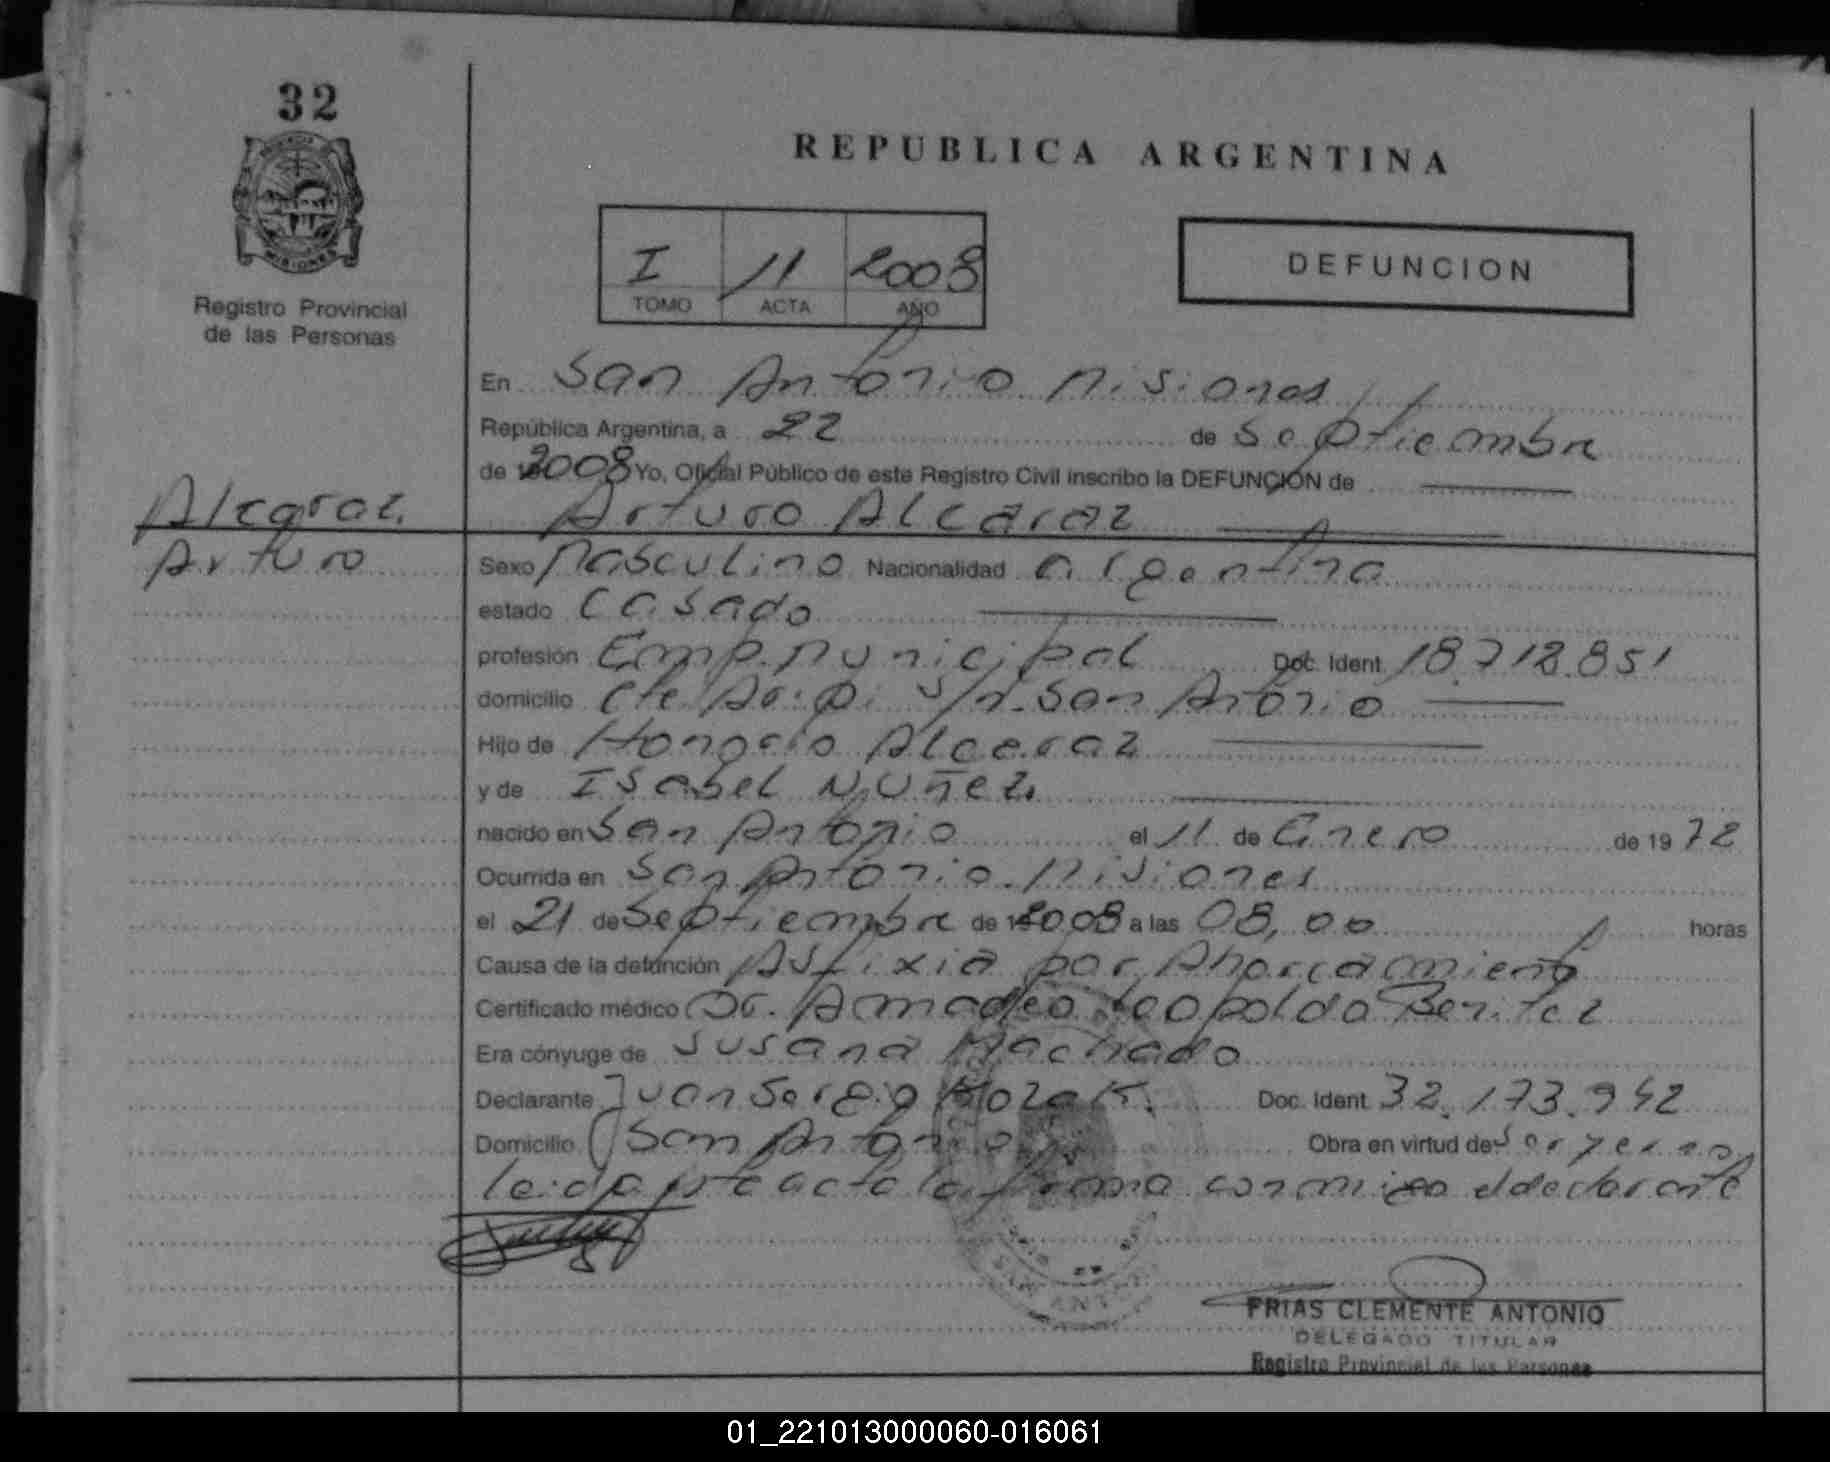 32
MISIONES
Registro Provincial
de las Personas
REPUBLICA ARGENTINA
I 11 2008
TOMO ACTA AÑO
DEFUNCION
En San Antonio Misiones
República Argentina, a 22 de Septiembre
de 2008 Yo, Oficial Público de este Registro Civil inscribo la DEFUNCIÓN de
Alcaraz Arturo Alcaraz
Arturo
Sexo Masculino Nacionalidad argentina
estado Casado
profesión Emp. Municipal Doc. Ident. 18.712.851
domicilio S/n. San Antonio
Hijo de Alcaraz
y de Isabel Nuñez
nacido en San Antonio el 11 de Enero de 1972
Ocurrida en San Antonio. Misiones
el 21 de Septiembre de 2008 a las 08,00 horas
Causa de la defunción Asfixia por Ahorcamiento
Certificado médico Dr. Amadeo Leopoldo Benitez
Era cónyuge de Susana Machado
Declarante Juan Sergio Kozak. Doc. Ident. 32.173.942
Domicilio San Antonio Obra en virtud de
leida pte acta la firma conmigo el declarante
SAN ANTONIO
FRIAS CLEMENTE ANTONIO
DELEGADO TITULAR
Registro Provincial de las Personas
01_221013000060-016061